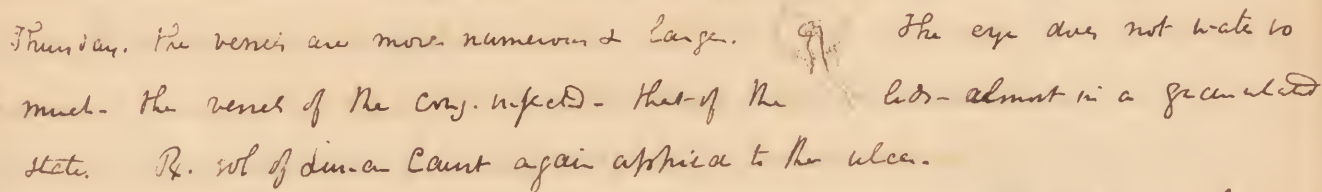 Thursday. The vessels are more numerous & large. The eye does not water so
much - the vessels of the conj. injected - that of the lids - almost in a granulated
state. Rx. sol of Lunar Caust again applied to the ulcer.